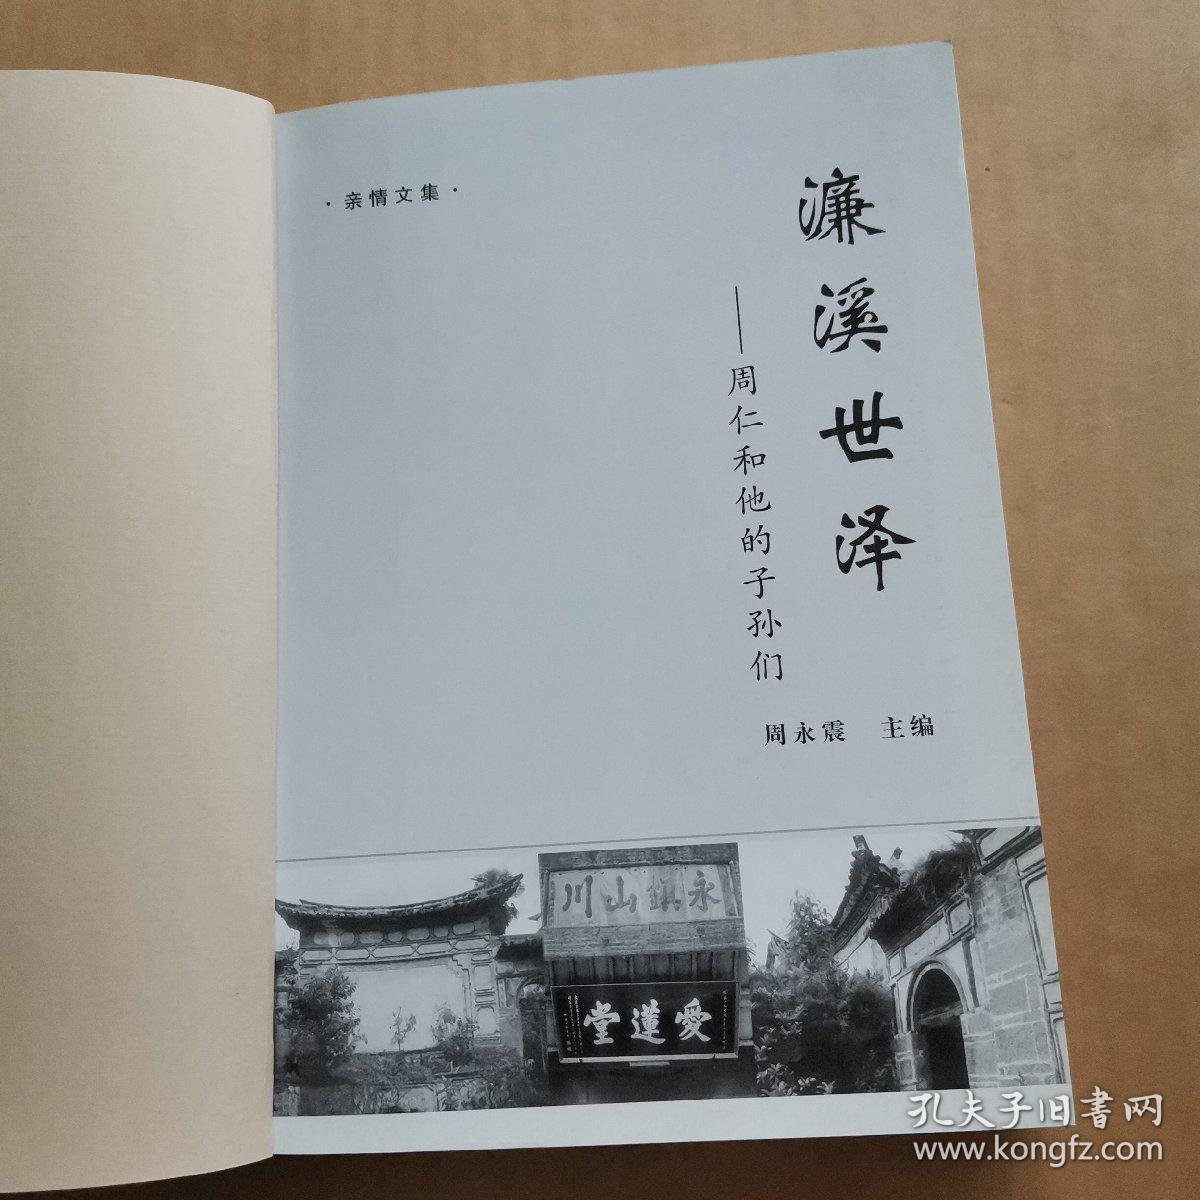 ·亲情文集·
濂溪世泽
——周仁和他的子孙们
周永震 主编
永鎮山川
愛蓮堂
孔夫子旧書网
www.kongfz.com